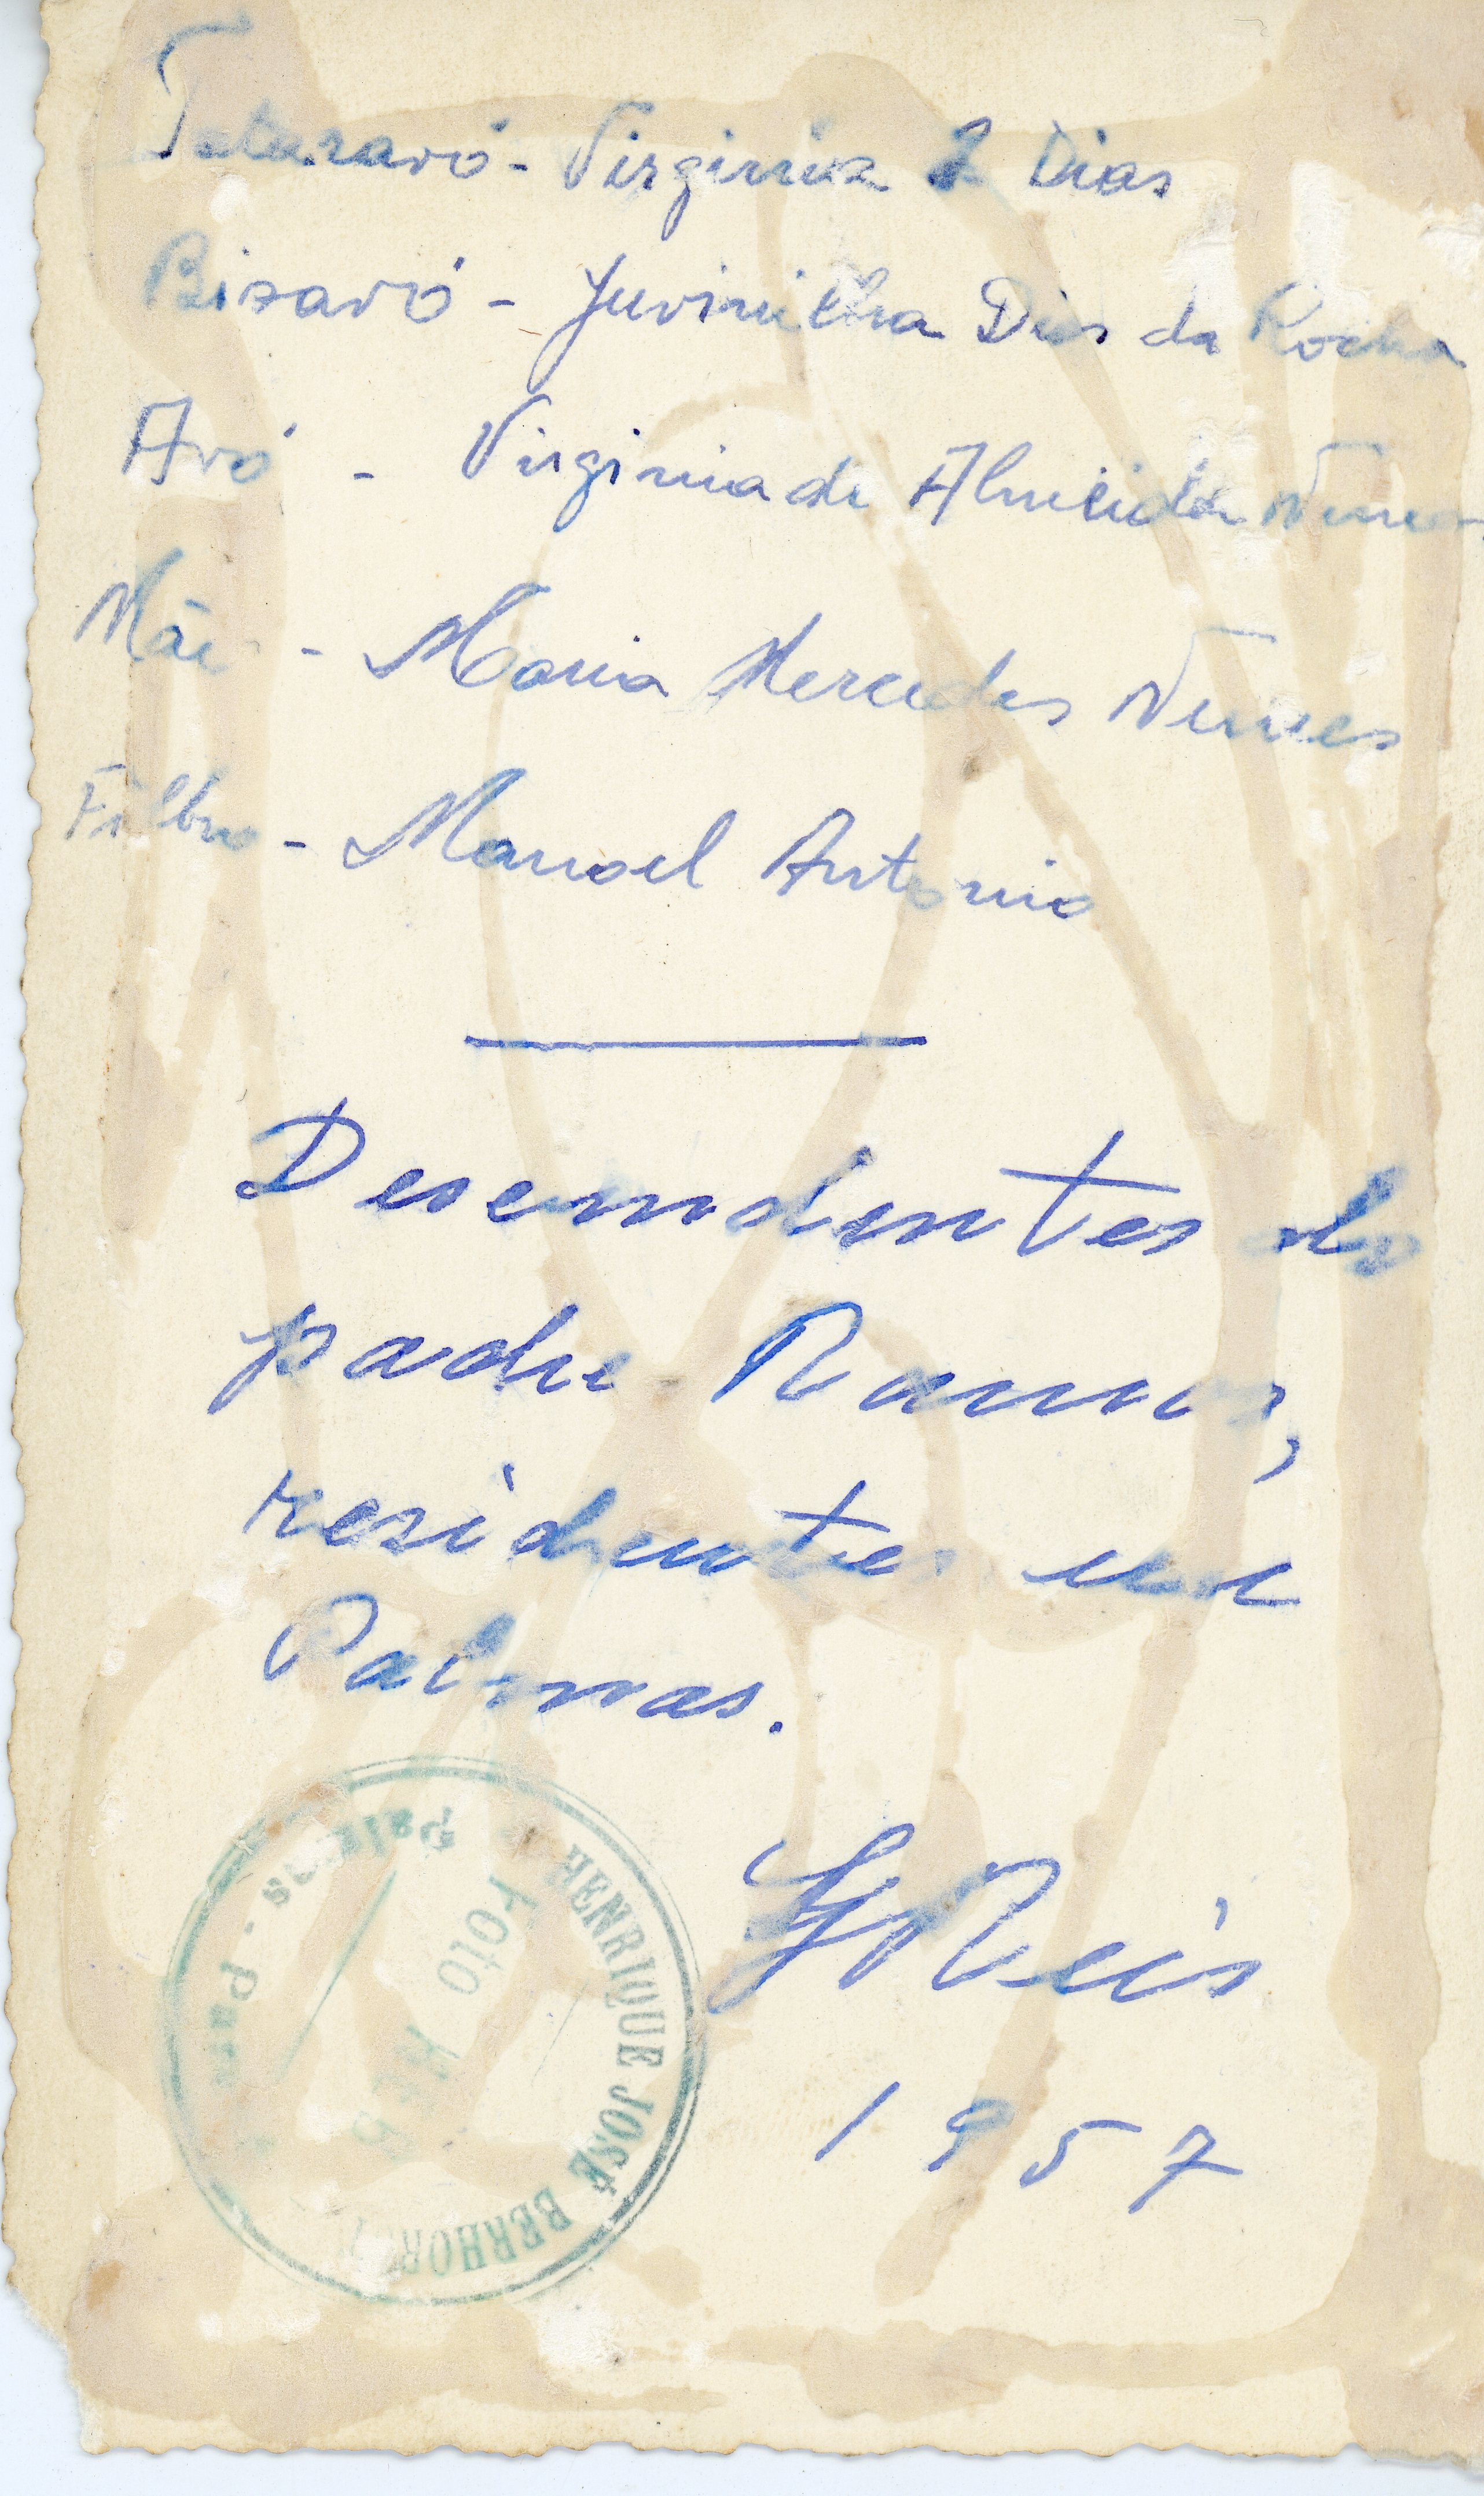 Tataravó - Virginia Dias
Bisavó - Juvinilha Dias da Rocha
Avó - Virginia de Almeida Nunes
Mãe - Maria Mercedes Nunes
Filho - Manoel Antonio
Desendentes do
padre Ramos,
residentes em
Palmas.
Reis
1957
HENRIQUE JOSÉ
Foto
Palmas - Paraná